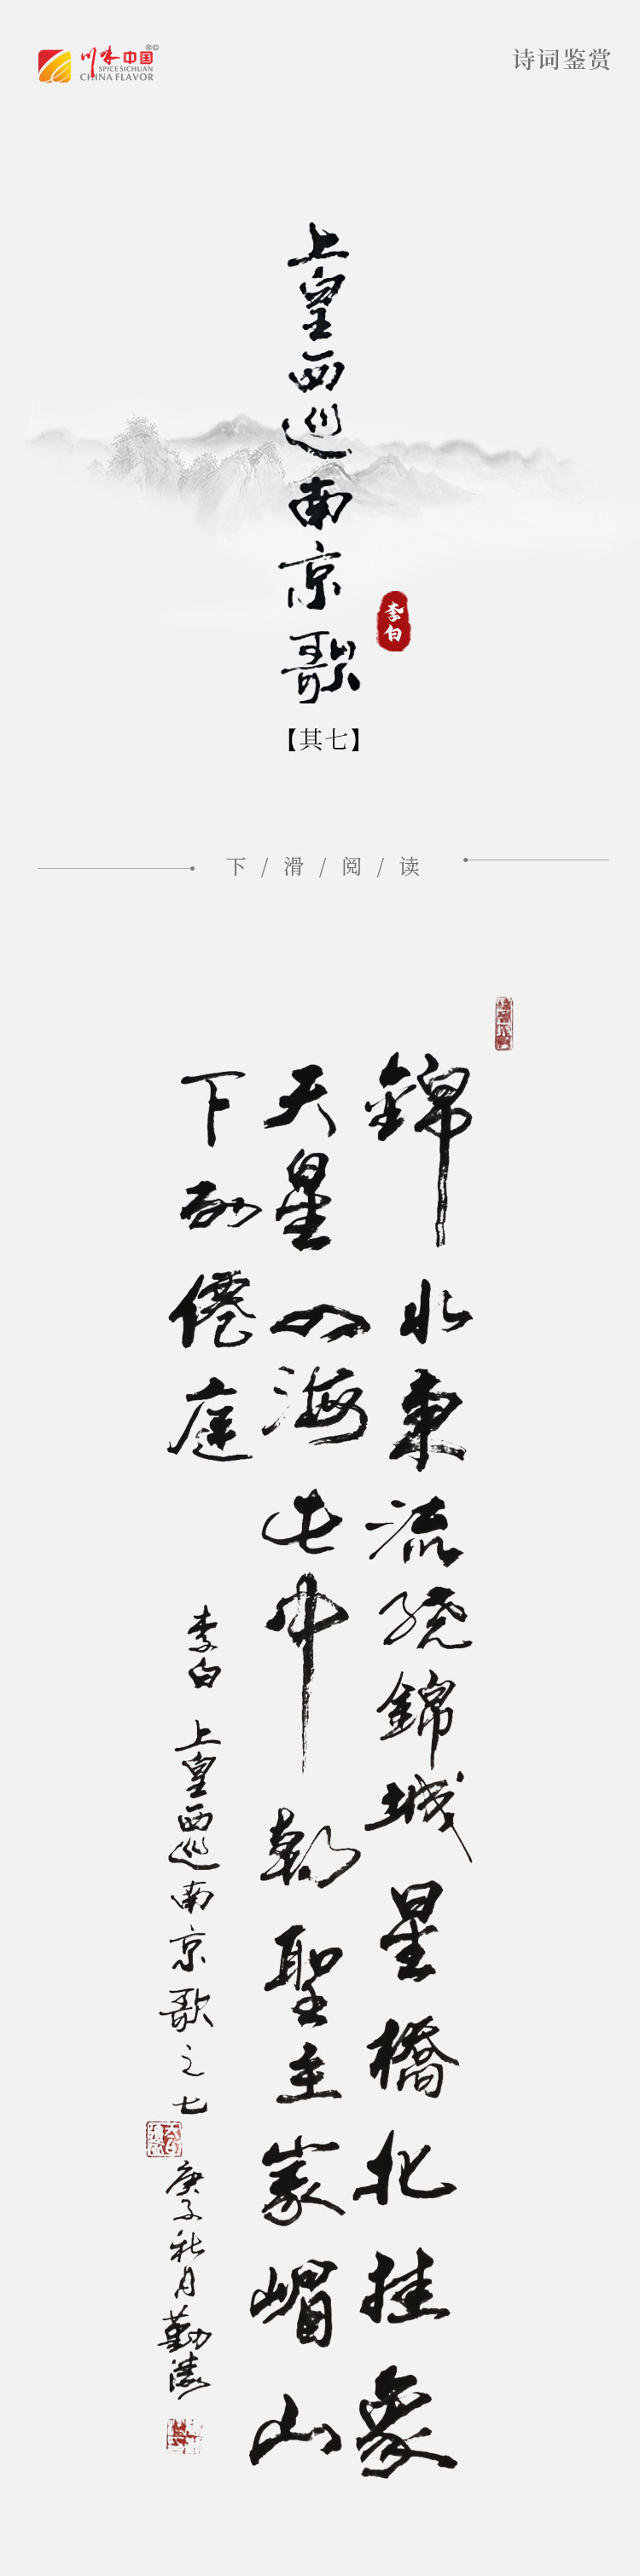 川味中国®©
SPICE SICHUAN
CHINA FLAVOR
诗词鉴赏
上皇西巡南京歌
李白
【其七】
下/滑/阅/读
錦水東流繞錦城星橋北挂象
天星四海此中朝聖主峩嵋山
下列僊庭
李白 上皇西巡南京歌之七 庚子秋月勤